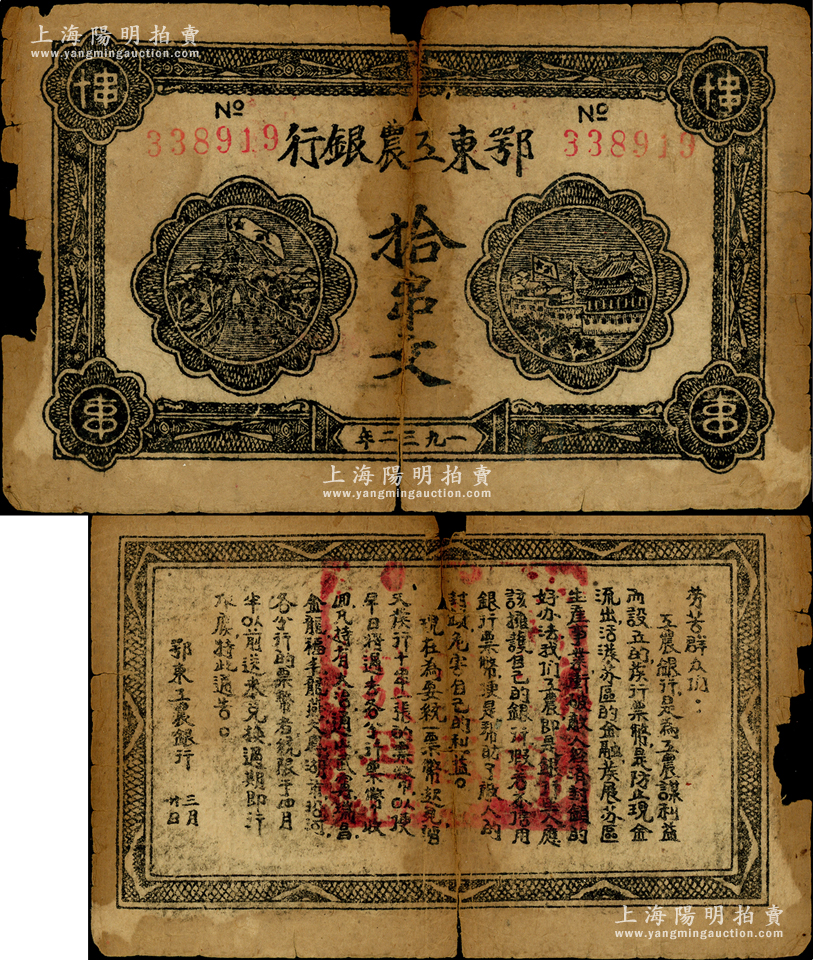 上海陽明拍賣
www.yangmingauction.com
№
338919
№
338919
鄂東工農銀行
拾串文
串
串
一九三二年
上海陽明拍賣
www.yangmingauction.com
勞苦群众們：
工農銀行是為工農謀利益
而設立的發行票幣是防止現金
流出活潑苏區的金融發展苏區
生産事業衝破敵人經济封鎖的
好办法我們工農即是銀行主人應
該擁護自己的銀行假若不信用
銀行票幣便是幫助了敵人的
封鎖危害自己的利益。
現在為要統一票幣起見
又發行十串一張的票幣以便
早日將過去各分行票幣收
回凡持有大冶通山武寧瑞昌
各分行的票幣者統限于四月
半以前送來兑换過期即行
作廢特此通告。
鄂東工農銀行
三月
廿日
上海陽明拍賣
www.yangmingauction.com